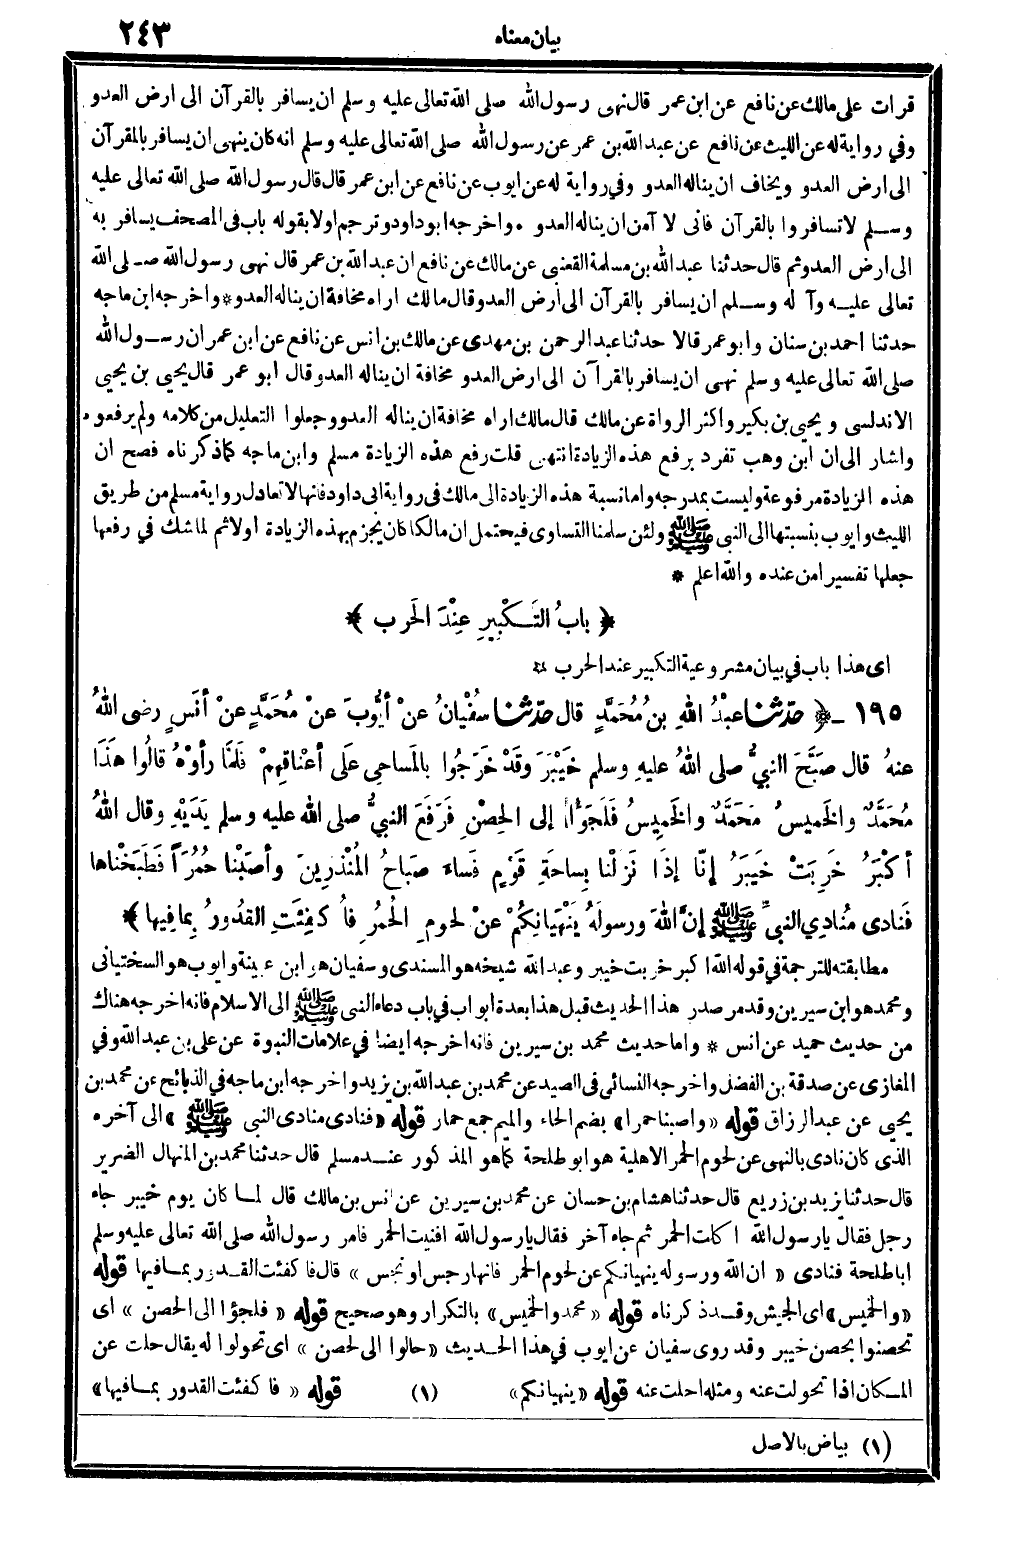 ٢٤٣
بيان معناه
قرات على مالك عن نافع عن ابن عمر قال نهى رسول الله صلى الله تعالى عليه وسلم ان يسافر بالقرآن الى ارض العدو
وفي رواية له عن الليث عن نافع عن عبدالله بن عمر عن رسول الله صلى الله تعالى عليه وسلم انه كان ينهى ان يسافر بالقرآن
الى ارض العدو ويخاف ان يناله العدو وفي رواية له عن ايوب عن نافع عن ابن عمر قال قال رسول الله صلى الله تعالى عليه
وسلم لا تسافروا بالقرآن فانى لا آمن ان يناله العدو * واخرجه ابو داود وترجم اولا بقوله باب فى المصحف يسافر به
الى ارض العدو ثم قال حدثنا عبدالله بن مسلمة القعنبى عن مالك عن نافع ان عبدالله بن عمر قال نهى رسول الله صلى الله
تعالى عليه وآله وسلم ان يسافر بالقرآن الى ارض العدو قال مالك اراه مخافة ان يناله العدو * واخرجه ابن ماجه
حدثنا احمد بن سنان وابو عمر قالا حدثنا عبد الرحمن بن مهدى عن مالك بن انس عن نافع عن ابن عمر ان رسول الله
صلى الله تعالى عليه وسلم نهى ان يسافر بالقرآن الى ارض العدو مخافة ان يناله العدو قال ابو عمر قال يحيى بن يحيى
الاندلسى ويحيى بن بكير واكثر الرواة عن مالك قال مالك اراه مخافة ان يناله العدو وجعلوا التعليل من كلامه ولم يرفعوه
واشار الى ان ابن وهب تفرد برفع هذه الزيادة انتهى قلت رفع هذه الزيادة مسلم وابن ماجه كما ذكرناه فصح ان
هذه الزيادة مرفوعة وليست بمدرجه واما نسبة هذه الزيادة الى مالك فى رواية ابى داود فانها لا تعادل رواية مسلم من طريق
الليث وايوب بنسبتها الى النبى ﷺ ولئن سلمنا التساوى فيحتمل ان مالكا كان يجزم بهذه الزيادة اولا ثم لما شك في رفعها
جعلها تفسيرا من عنده والله اعلم *
﴿ بابُ التَّكْبِيرِ عِنْدَ الحَرب ﴾
اى هذا باب في بيان مشروعية التكبير عند الحرب *
١٩٥ ـ ﴿ حدّثنا عبْدُ اللهِ بنُ مُحَمَّدٍ قال حدّثنا سُفْيانُ عنْ أيُّوبَ عنْ مُحَمَّدٍ عنْ أنَسٍ رضى اللهُ
عنهُ قال صَبَّحَ النبيُّ صلى اللهُ عليهِ وسلم خَيْبَرَ وقَدْ خَرَجُوا بالمَساحِى عَلَى أعْناقِهِمْ فَلَمَّا رأوْهُ قالُوا هَذَا
مُحَمَّدٌ والخَمِيسُ مُحَمَّدٌ والخَمِيسُ فَلَجَؤُا إلى الحِصْنِ فَرَفَعَ النبيُّ صلى الله عليه وسلم يَدَيْهِ وقال اللهُ
أكْبَرُ خَرِبَتْ خَيبَرُ إنَّا إذَا نَزلْنا بِساحَةِ قَوْمٍ فَساءَ صَباحُ المُنْذَرِينَ وأصَبْنا حُمُرًا فَطَبَخْناها
فَنادى مُنادِي النبيِّ ﷺ إنَّ اللهَ ورسولَهُ يَنْهَيانِكُمْ عنْ لحومِ الْحُمُرِ فأُكْفِئَتِ القُدُورُ بِما فِيها ﴾
مطابقته للترجمة في قوله الله اكبر خربت خيبر وعبد الله شيخه هو المسندى وسفيان هو ابن عيينة وايوب هو السختيانى
ومحمد هو ابن سيرين وقد مر صدر هذا الحديث قبل هذا بعدة ابواب في باب دعاء النبى ﷺ الى الاسلام فانه اخرجه هناك
من حديث حميد عن انس * واما حديث محمد بن سيرين فانه اخرجه ايضا في علامات النبوة عن على بن عبد الله وفي
المغازى عن صدقة بن الفضل واخرجه النسائى فى الصيد عن محمد بن عبد الله بن يزيد واخرجه ابن ماجه في الذبائح عن محمد بن
يحيى عن عبد الرزاق قوله «واصبنا حمرا» بضم الحاء والميم جمع حمار قوله «فنادى منادى النبى ﷺ» الى آخره
الذى كان نادى بالنهى عن لحوم الحمر الاهلية هو ابو طلحة كما هو المذكور عند مسلم قال حدثنا محمد بن المنهال الضرير
قال حدثنا يزيد بن زريع قال حدثنا هشام بن حسان عن محمد بن سيرين عن انس بن مالك قال لما كان يوم خيبر جاء
رجل فقال يا رسول الله اكلت الحمر ثم جاء آخر فقال يا رسول الله افنيت الحمر فامر رسول الله صلى الله تعالى عليه وسلم
ابا طلحة فنادى « ان الله ورسوله ينهيانكم عن لحوم الحمر فانها رجس او نجس » قال فاكفئت القدور بما فيها قوله
«والخميس» اى الجيش وقد ذكرناه قوله «محمد والخميس» بالتكرار وهو صحيح قوله « فلجؤا الى الحصن » اى
تحصنوا بحصن خيبر وقد روى سفيان عن ايوب في هذا الحديث «حالوا الى لحصن » اى تحولوا له يقال حلت عن
المكان اذا تحولت عنه ومثله احلت عنه قوله «ينهيانكم» (١) قوله « فاكفئت القدور بما فيها»
(١) بياض بالاصل